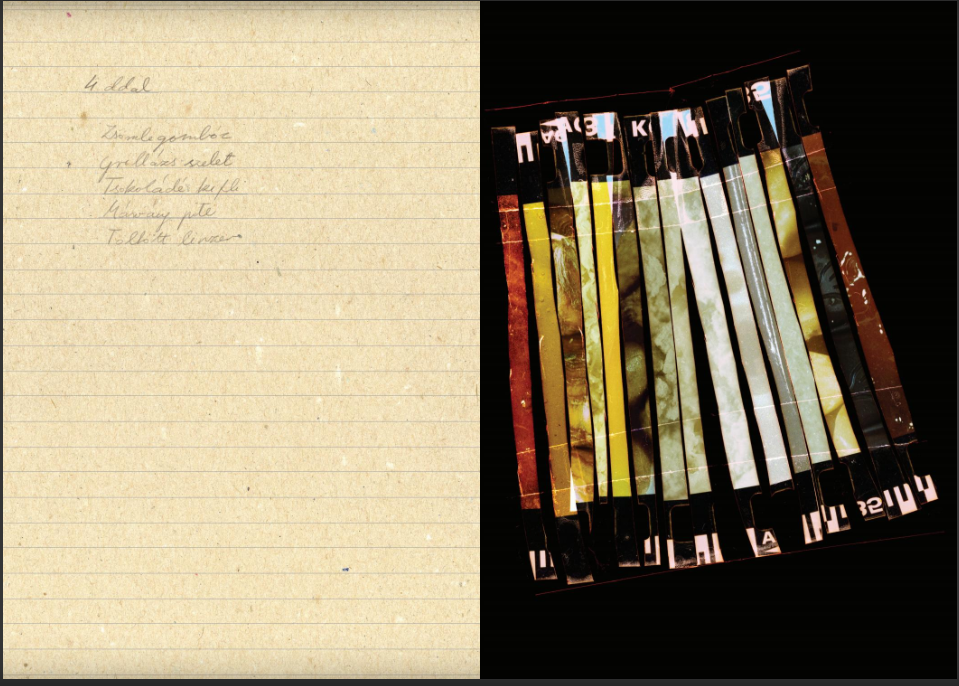 4. oldal
Zsemlegombóc
Grillázs szelet
Csokoládés kifli
Márvány pite
Töltött linzer
K
A